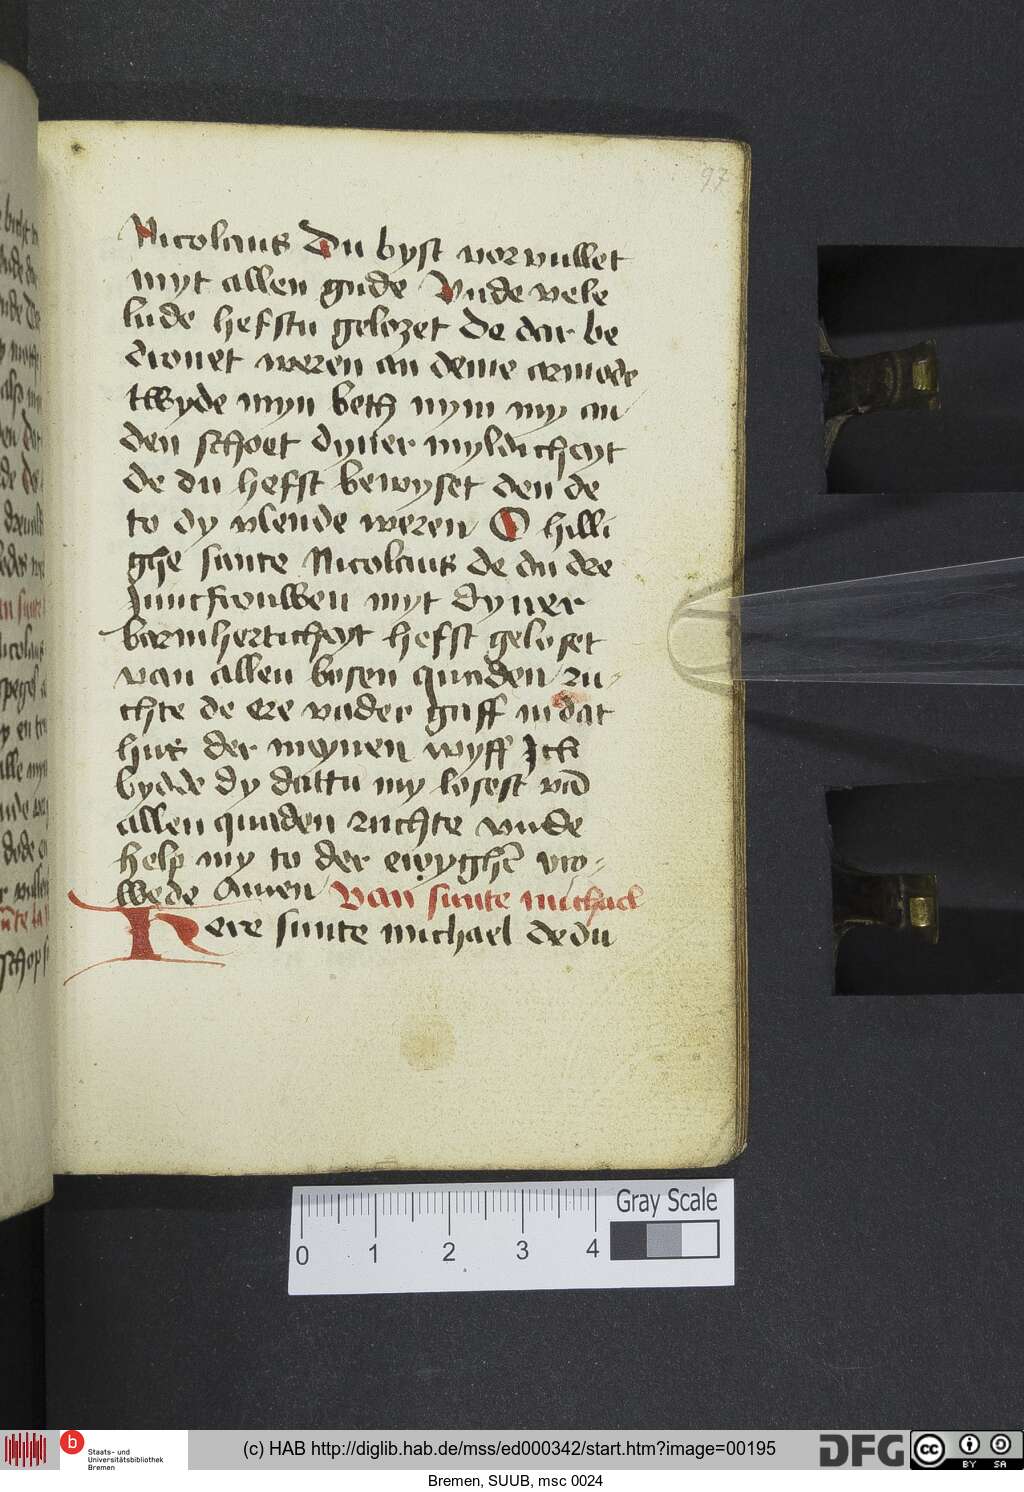 97
Nicolaus Du byst vorvullet
myt allen gude Vnde vele
lude hefstu gelozet de dar be
drouet weren an deme armode
twyde myn beth nym my an
den schoet dyner myldicheyt
de du hefst bewyset den de
to dy vlende weren O hilli
ghe sunte Nicolaus de du dre
Juncfrouwen myt dyner
barmherticheyt hefst geloset
van allen bosen quaden ru
chte de ere vader gaff in dat
hus der meynen wyff Ick
bydde dy dattu my losest vā
allen quaden ruchte vnde
help my to der ewyghē vro-
wede Amen Van sunte michael
Here sunte michael de du
0 1 2 3 4
Gray Scale
Staats- und
Universitätsbibliothek
Bremen
(c) HAB http://diglib.hab.de/mss/ed000342/start.htm?image=00195
DFG
cc BY SA
Bremen, SUUB, msc 0024